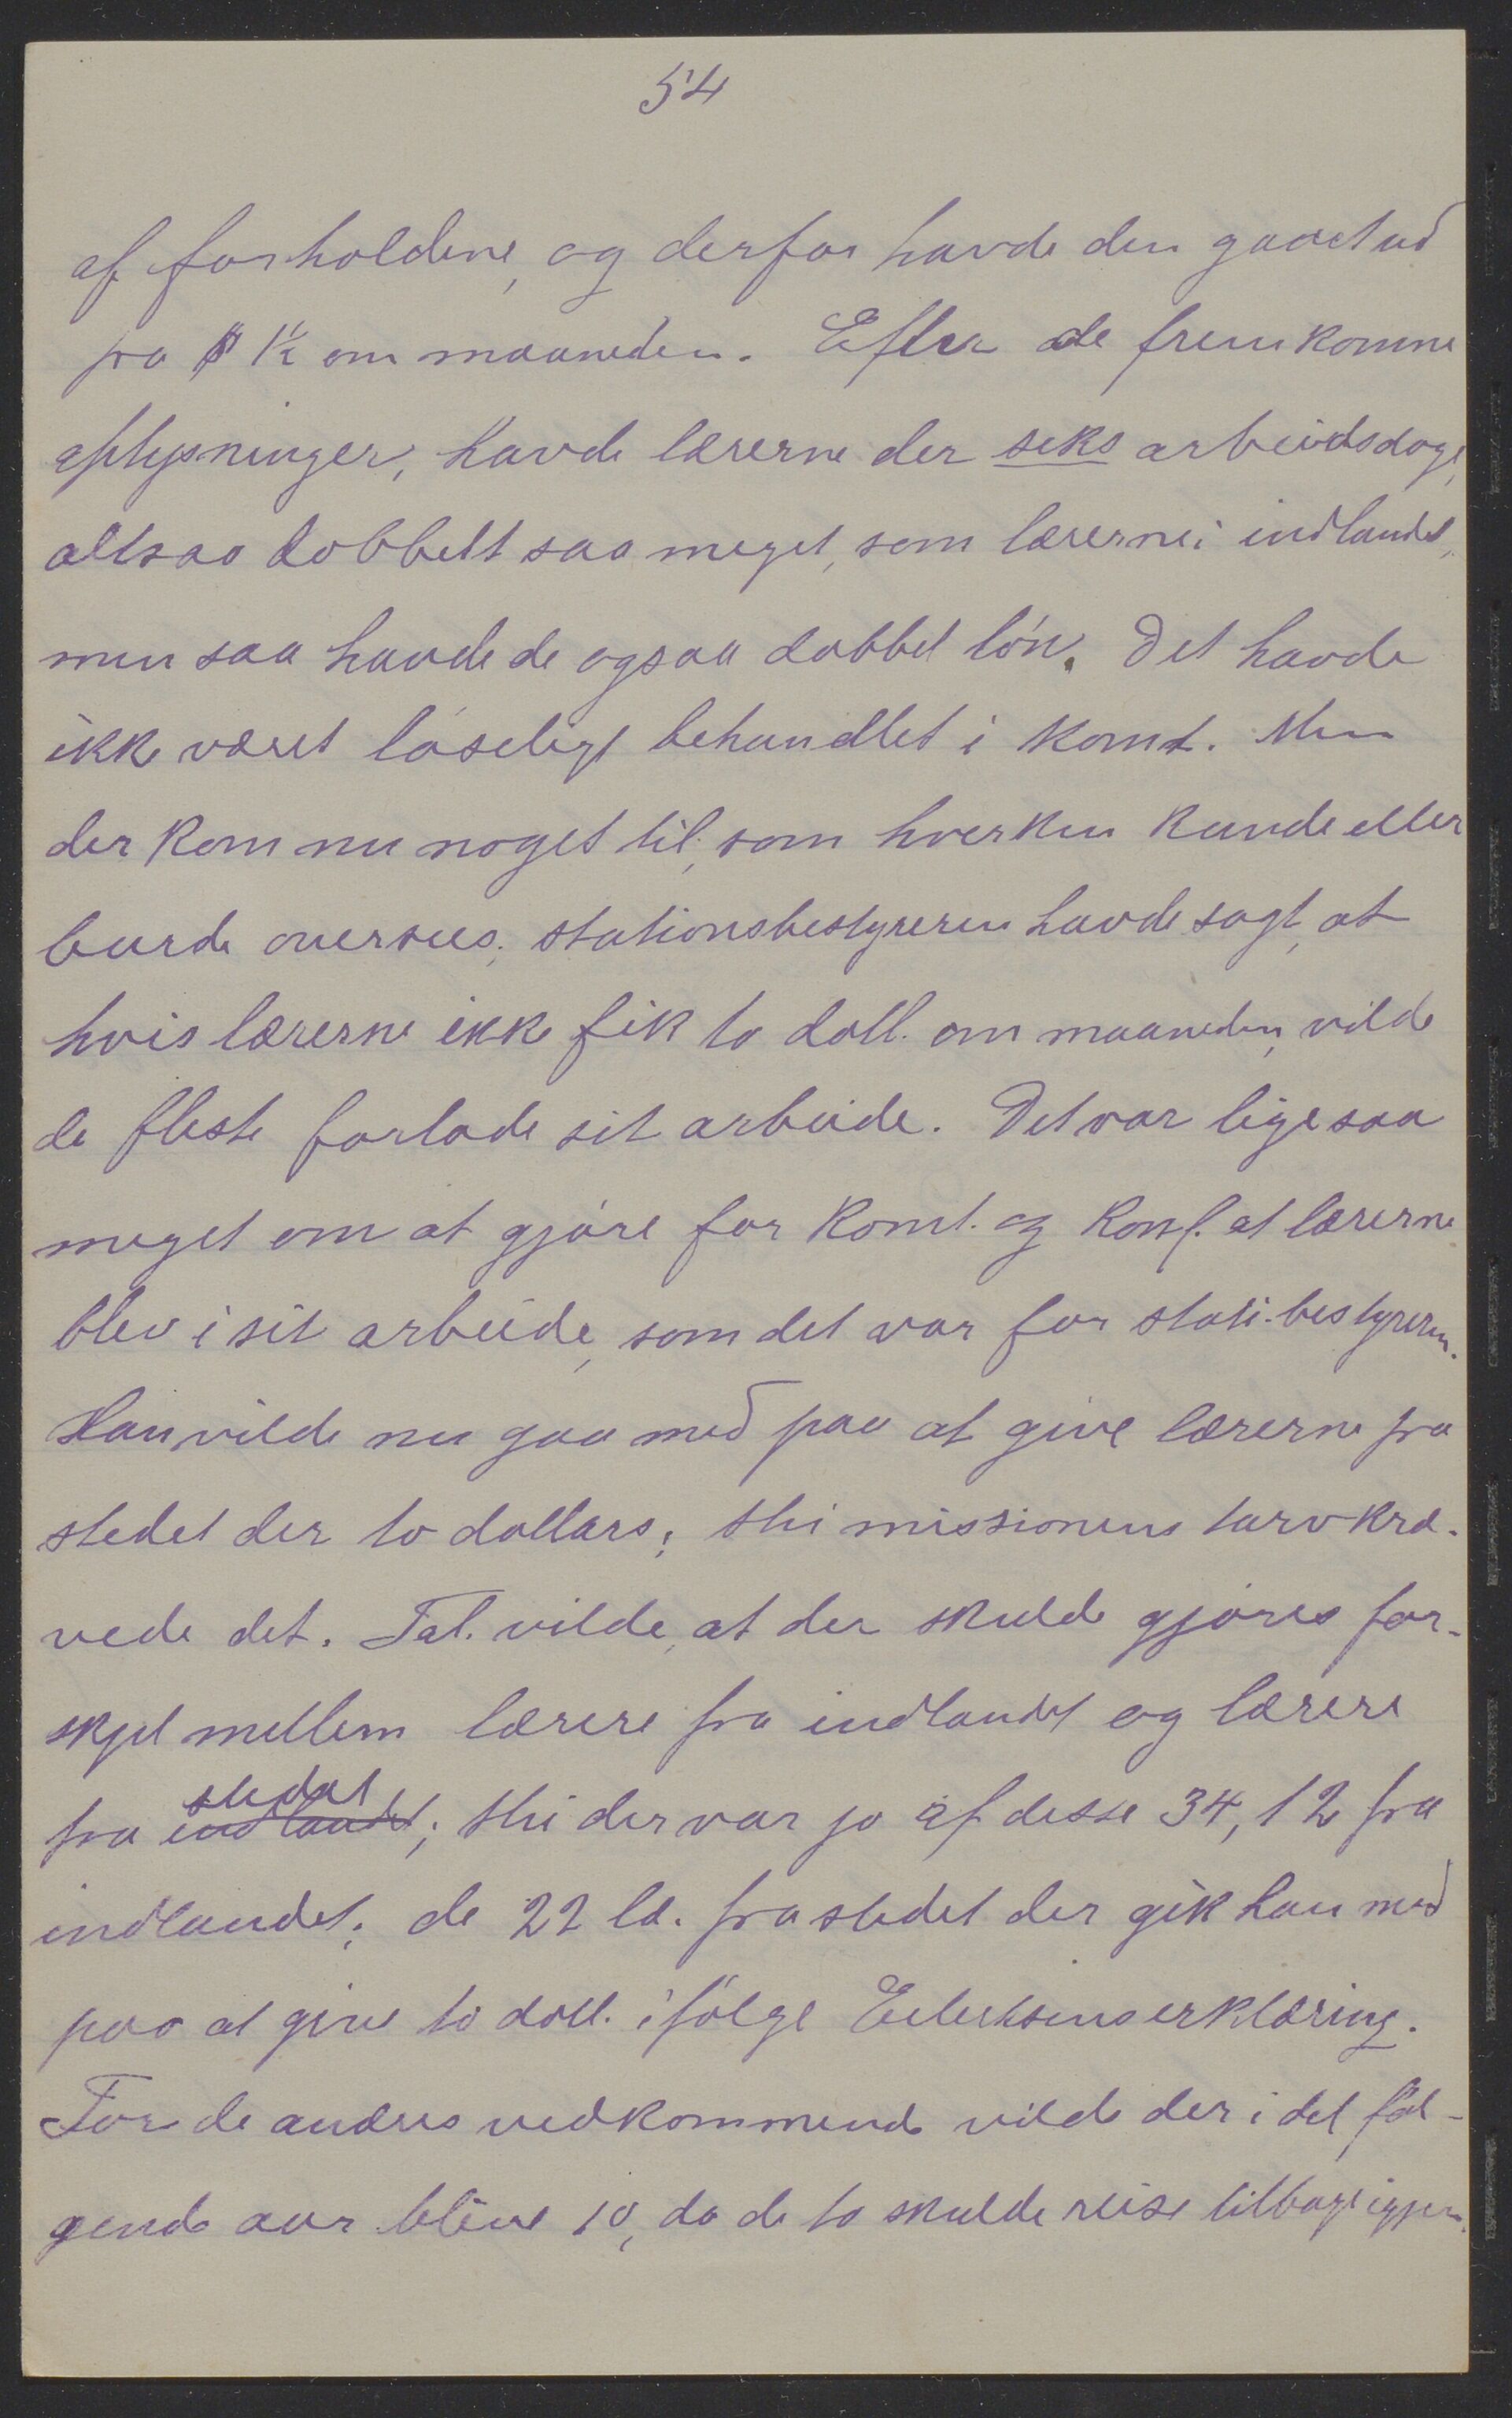 54
af forholdene, og derfor havde den gaaet ud
fra $ 1½ om maaneden. Efter de fremkomne
oplysninger, havde lærerne der seks arbeidsdage,
altsaa dobbelt saa meget, som lærerne i indlandet,
men saa havde de ogsaa dobbel løn. Det havde
ikke været løseligt behandlet i Komt. Men
der kom nu noget til, som hverken kunde eller
burde oversees; stationsbestyreren havde sagt, at
hvis lærerne ikke fik to doll. om maaneden, vilde
de fleste forlade sit arbeide. Det var ligesaa
meget om at gjøre for Komt. og Konf. at lærerne
blev i sit arbeide, som det var for stati-bestyreren.
Han vilde nu gaa med paa at give lærerne fra
stedet der to dollars; thi missionens tarv kræ-
vede det. Tal. vilde, at der skulde gjøres for-
skjel mellem lærere fra indlandet og lærere
fra indlandet stedet; thi der var jo af disse 34, 12 fra
indlandet; de 22 læ. fra stedet der gik han med
paa at give to doll. ifølge Eilertsens erklæring.
For de andres vedkommende vilde der i det føl-
gende aar blive 10, da de to skulde reise tilbage igjen.